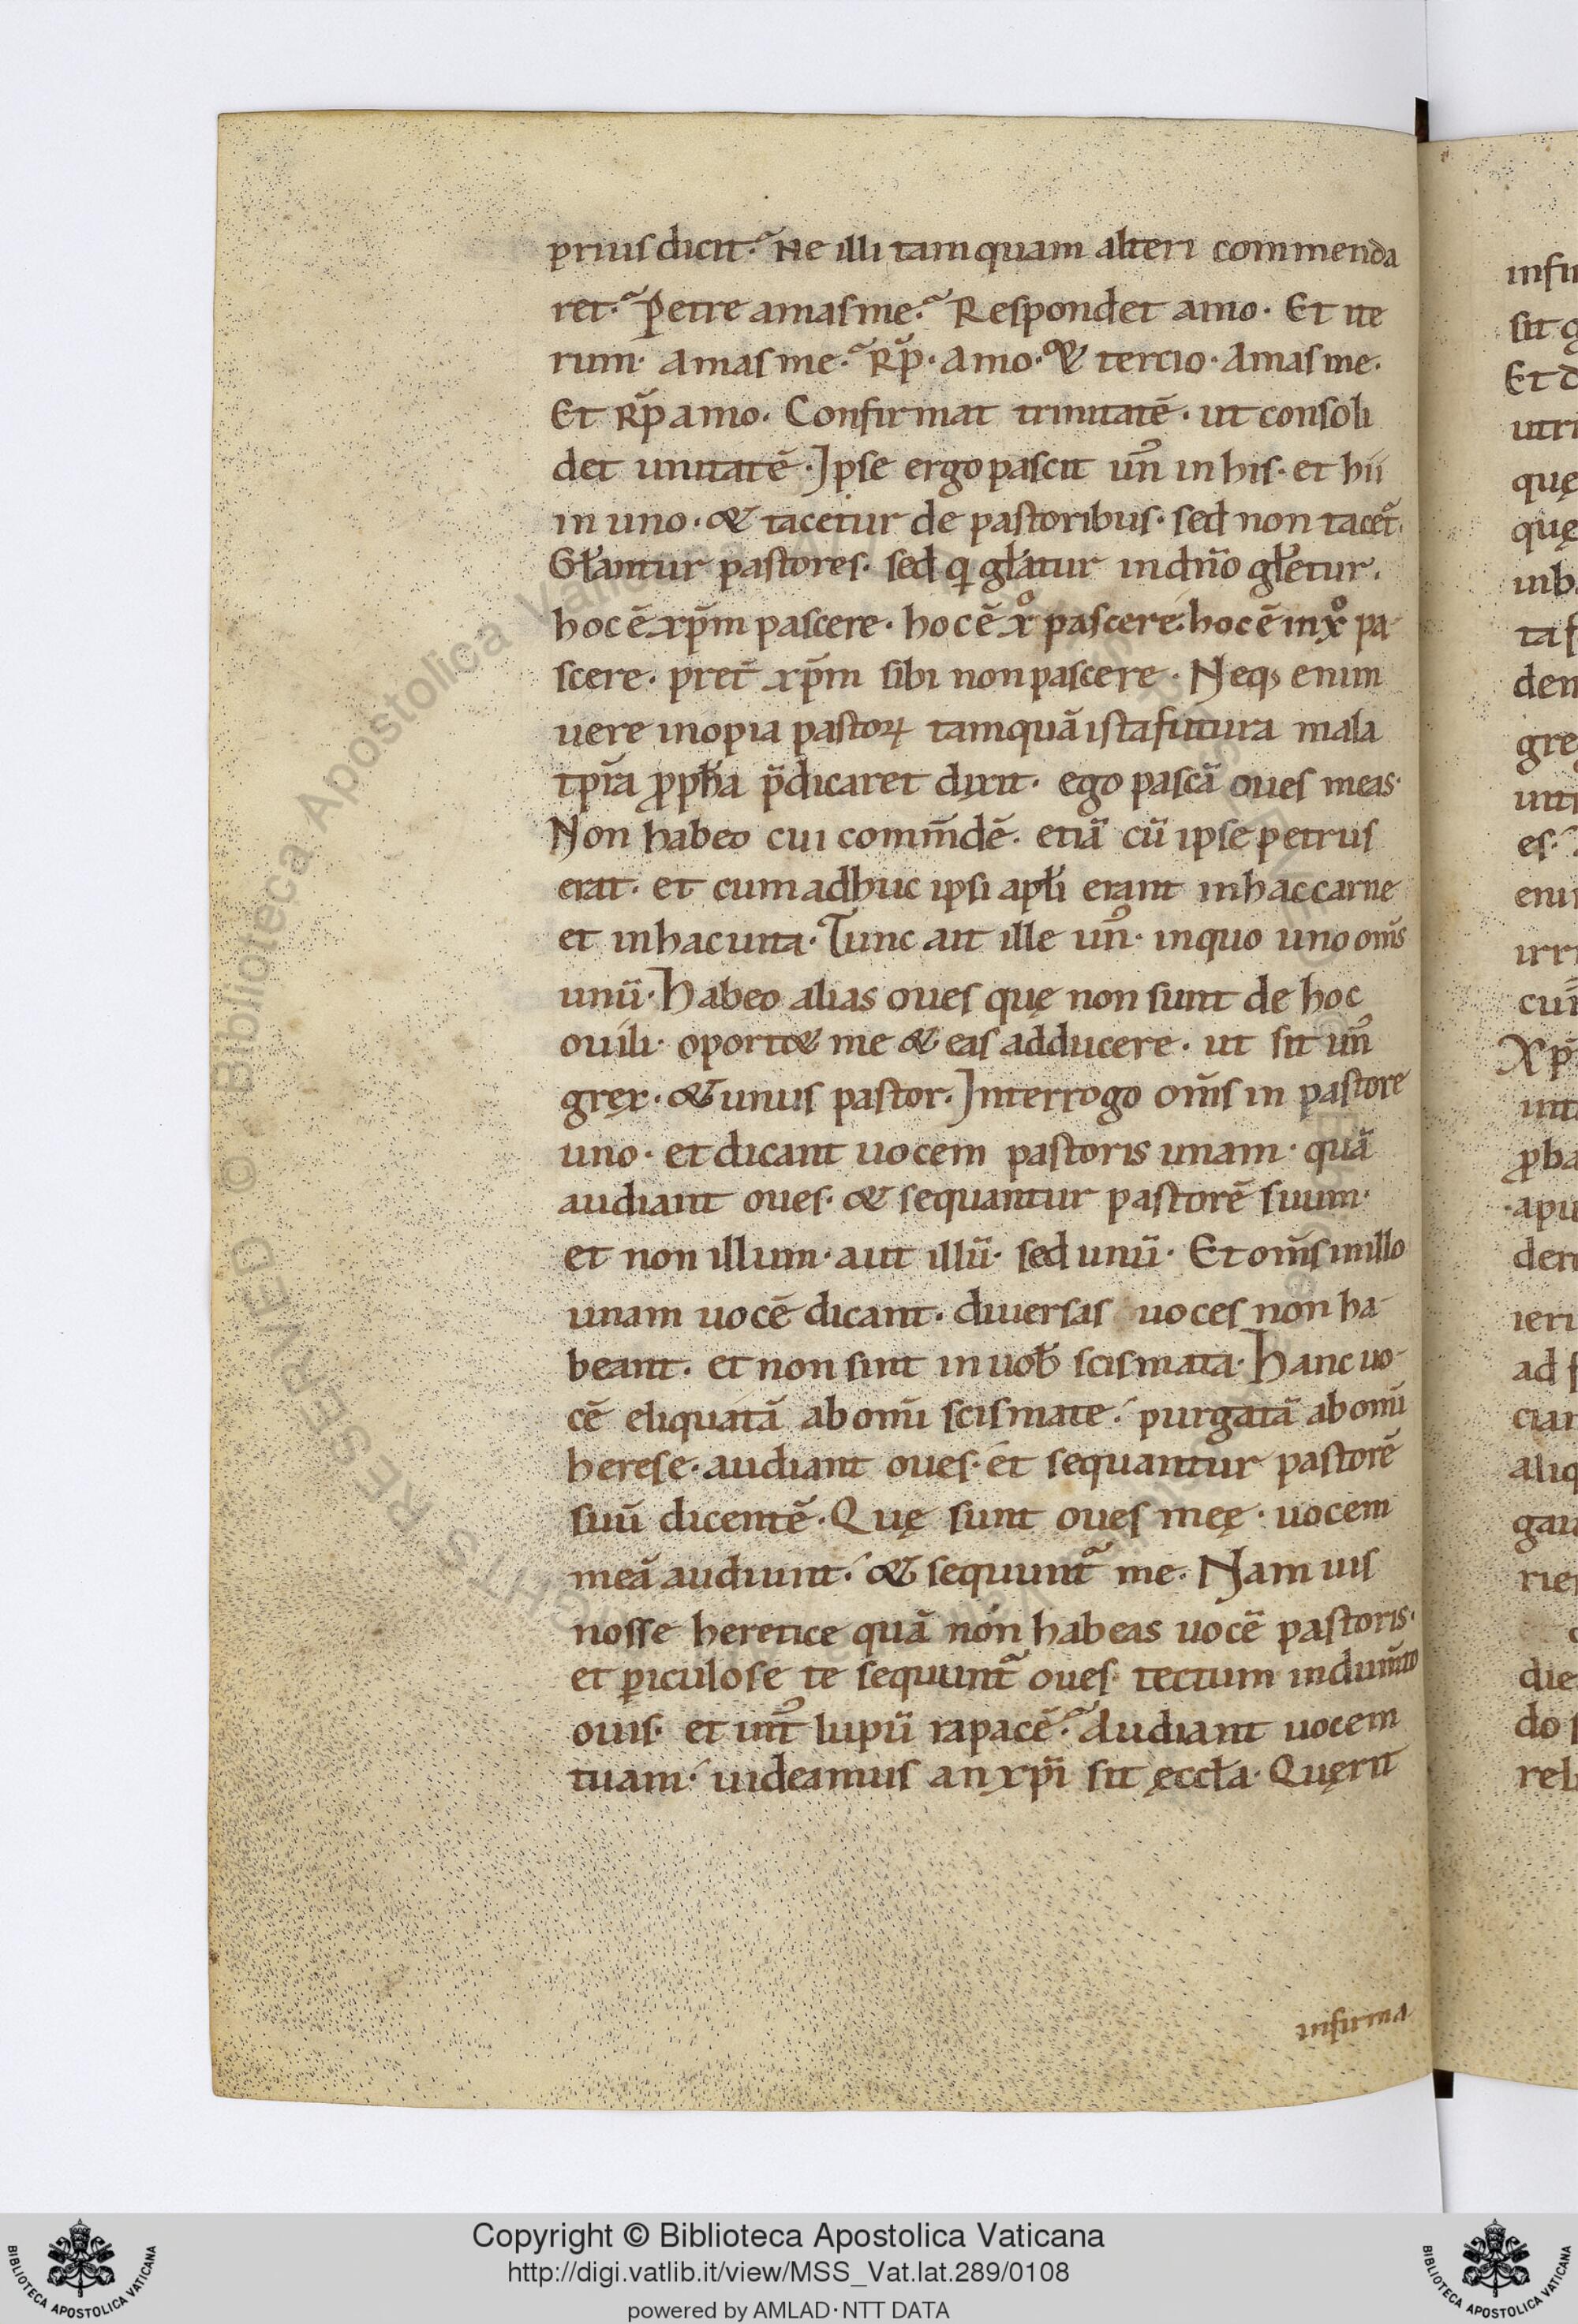 prius dicit. Ne illi tamquam alteri commenda
ret. Petre amas me. Respondet amo. Et ite
rum. amas me. Rp̄. Amo. & tercio. Amas me.
Et Rp̄ amo. Confirmat trinitatē. ut consoli
det unitatē. Ipse ergo pascit un᷒ in his. et hii
in uno. & tacetur de pastoribus. sed non tacet᷑.
Gl̄antur pastores. sed qi gl̄atur in dn̄o gl̄etur.
hoc ē xp̄m pascere. hoc ē xͦ pascere. hoc ē in xͦ pa-
scere. pret̄ xp̄m sibi non pascere. Neq; enim
uere inopia pastoꝝ tamquā ista futura mala
tp̄ra ꝓph̄a p̄dicaret dixit. ego pascā oues meas.
Non habeo cui com̄dē. etiā cū ipse petrus
erat. et cum adhuc ipsi apl̄i erant in hac carne
et in hac uita. Tunc ait ille un᷒. in quo uno om̄s
unū. Habeo alias oues quę non sunt de hoc
ouili. oport& me & eas adducere. ut sit un᷒
gręx. & unus pastor. Interrogo om̄s in pastore
uno. et dicant uocem pastoris unam. quā
audiant oues. & sequantur pastorē suum.
et non illum. aut illū. sed unū. Et om̄s in illo
unam uocē dicant. diuersas uoces non ha-
beant. et non sint in uob̄ scismata. Hanc uo-
cē eliquatā ab omī scismate. purgatā ab omī
herese. audiant oues. et sequantur pastorē
suū dicentē. Quę sunt oues męę. uocem
meā audiunt. & sequunt᷑ me. Nam uis
nosse heretice quā non habeas uocē pastoris.
et ꝑiculose te sequunt᷑ oues. tectum indum̄to
ouis. et int᷒ lupū rapacē. Audiant uocem
tuam. uideamus an xp̄i sit ęccl̄a. Quęrit
infirma
infir
sit g
Et d
utri
quę
quę
inb
ta f
den
gre
unt
es.
eni
irri
cum
Xp̄
int
ꝓba
apu
den
ieri
ad s
cian
aliq
gau
rie
die
do
reb
© Biblioteca Apostolica Vaticana
RIGHTS RESERVED
Copyright © Biblioteca Apostolica Vaticana
http://digi.vatlib.it/view/MSS_Vat.lat.289/0108
powered by AMLAD·NTT DATA
BIBLIOTECA APOSTOLICA VATICANA
BIBLIOTECA APOSTOLICA VATICANA